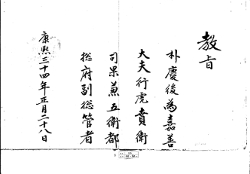 敎旨
朴慶後爲嘉善
大夫行虎賁衛
司果兼五衛都
摠府副摠管者
康熙三十四年正月二十八日